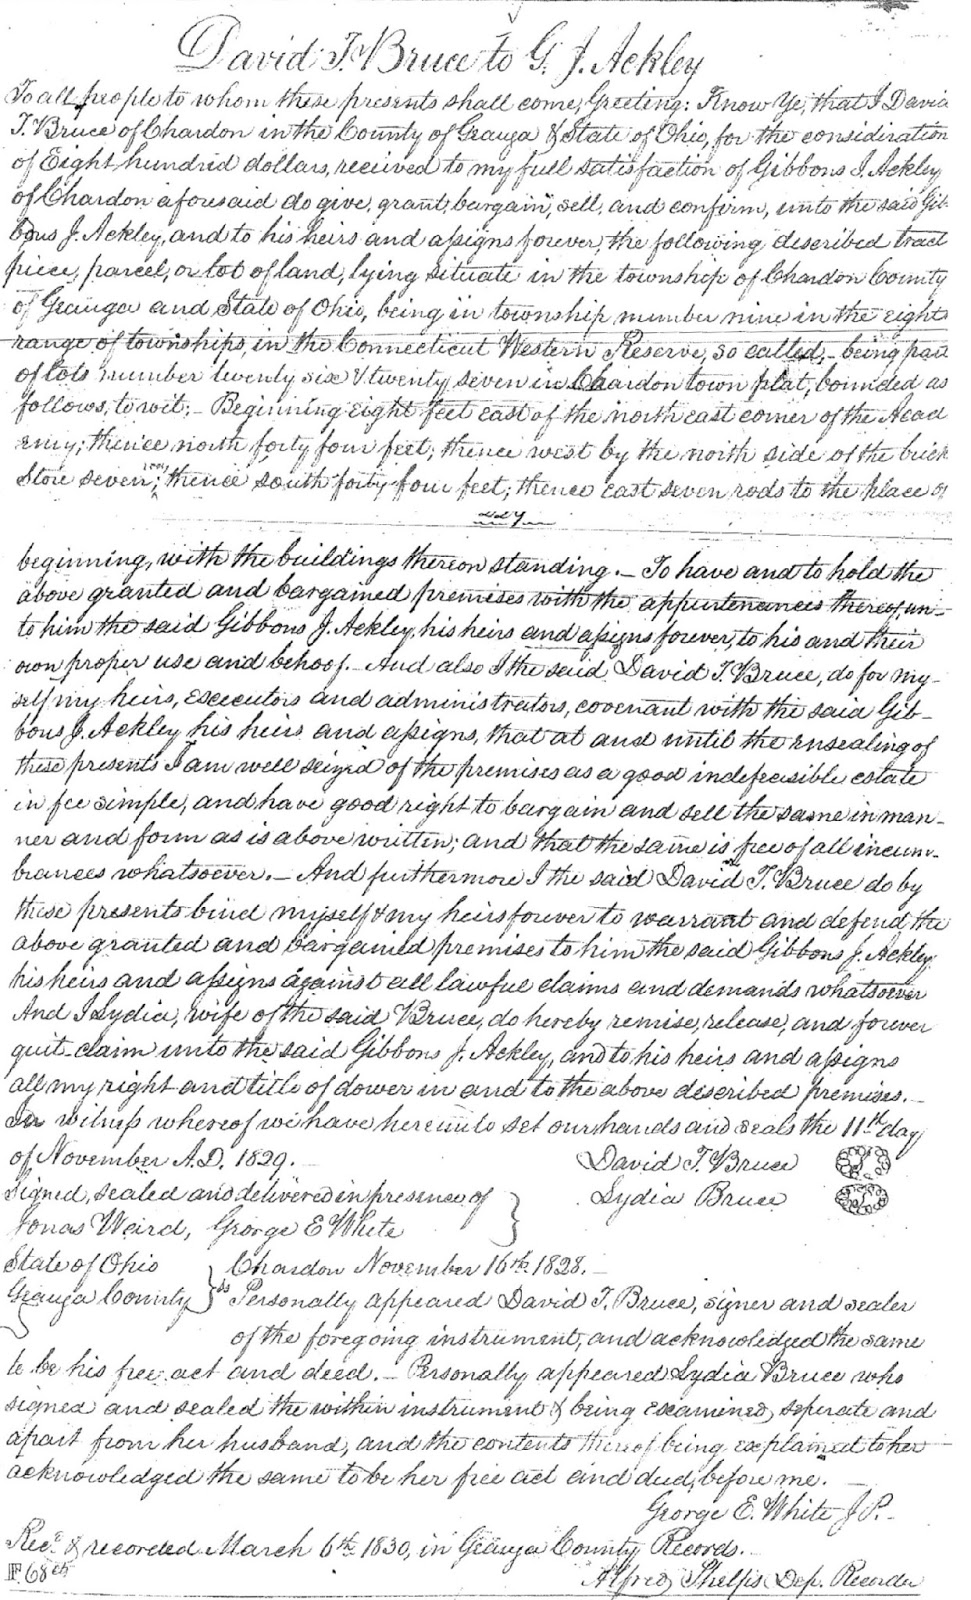 David T. Bruce to G. J. Ackley
To all people to whom these presents shall come, Greeting: Know Ye, that I David
T. Bruce of Chardon in the County of Geauga & State of Ohio, for the consideration
of Eight hundred dollars, received to my full satisfaction of Gibbons J. Ackley
of Chardon aforesaid do give, grant, bargain, sell, and confirm, unto the said Gib-
bons J. Ackley, and to his heirs and assigns forever, the following described tract
piece, parcel, or lot of land, lying situate in the township of Chardon County
of Geauga and State of Ohio, being in township number nine in the eighth
range of townships, in the Connecticut Western Reserve, so called,- being part
of lots number twenty six & twenty seven in Chardon town plat, bounded as
follows, to wit;- Beginning eight feet east of the north east corner of the Acad
emy; thence north forty four feet; thence west by the north side of the brick
Store seven rods; thence south forty four feet; thence east seven rods to the place of
beginning, with the buildings thereon standing.- To have and to hold the
above granted and bargained premises with the appurtenances thereof, un-
to him the said Gibbons J. Ackley, his heirs and assigns forever, to his and their
own proper use and behoof.- And also I the said David T. Bruce, do for my-
self my heirs, executors and administrators, covenant with the said Gib-
bons J. Ackley his heirs and assigns, that at and until the ensealing of
these presents I am well seized of the premises as a good indefeesible estate
in fee simple, and have good right to bargain and sell the same in man-
ner and form as is above written; and that the same is free of all incum-
brances whatsoever.- And furthermore I the said David T. Bruce do by
these presents bind myself & my heirs forever to warrant and defend the
above granted and bargained premises to him the said Gibbons J. Ackley
his heirs and assigns against all lawful claims and demands whatsoever
And I Lydia, wife of the said Bruce, do hereby remise, release, and forever
quit-claim unto the said Gibbons J. Ackley, and to his heirs and assigns
all my right and title of dower in and to the above described premises.-
In witness whereof we have hereunto set our hands and seals the 11th day
of November A.D. 1829. David T. Bruce
Signed, sealed and delivered in presence of Lydia Bruce
Jonas Weird, George E White
State of Ohio Chardon November 16th 1828.-
Geauga County ss Personally appeared David T. Bruce, signer and sealer
of the foregoing instrument, and acknowledged the same
to be his free act and deed.- Personally appeared Lydia Bruce who
signed and sealed the within instrument & being examined, seperate and
apart from her husband, and the contents thereof being explained to her
acknowledged the same to be her free act and deed, before me.
George E. White J P.-
Recd & recorded March 6th 1830, in Geauga County Records.-
Alfred Phelps, Dep. Recorder